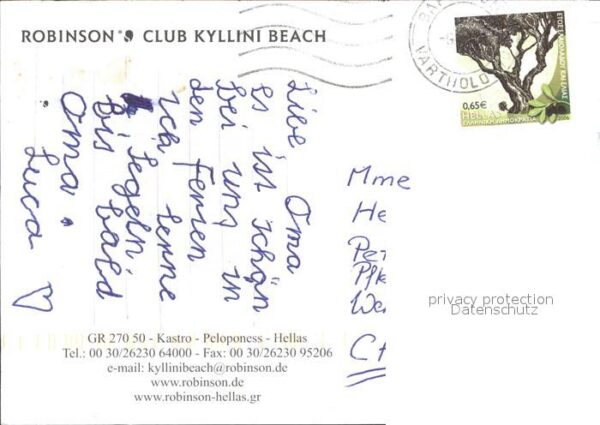 ROBINSON CLUB KYLLINI BEACH
Liebe Oma
es ist schön
bei uns in
den Ferien
ich lerne
Segeln
Bis bald
Oma.
Luca
GR 270 50 - Kastro - Peloponess - Hellas
Tel.: 00 30/26230 64000 - Fax: 00 30/26230 95206
e-mail: kyllinibeach@robinson.de
www.robinson.de
www.robinson-hellas.gr
VARTHOLO
0,65€
HELLAS
ΕΛΛΗΝΙΚΗ ΔΗΜΟΚΡΑΤΙΑ
Mme
He
Pe
Pfk
We
CH
privacy protection
Datenschutz